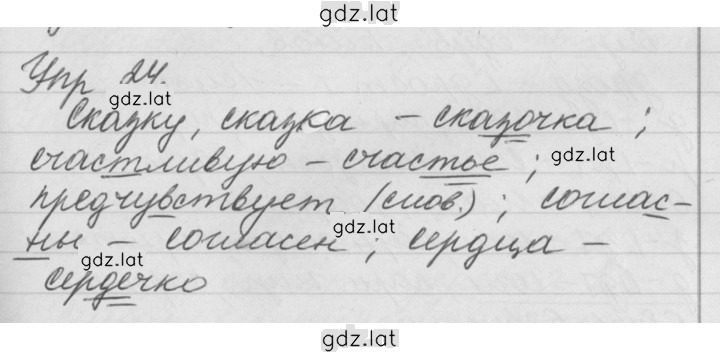 gdz.lat
Упр 24.
gdz.lat
Сказку, сказка – сказочка;
счастливую – счастье; gdz.lat
предчувствует (слов.); соглас-
ны – согласен; сердца –
gdz.lat
сердечко
gdz.lat